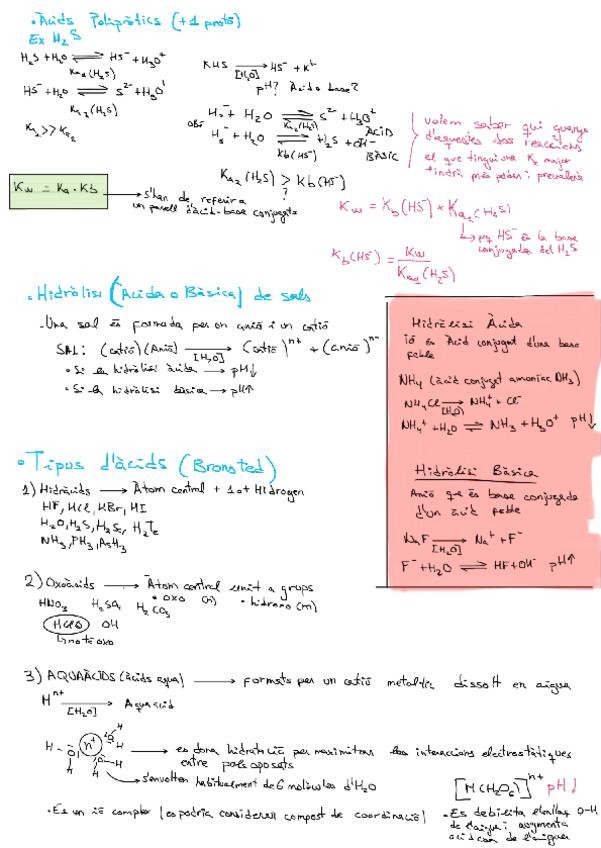 • Àcids Polipròtics (+1 protó)
Ex H₂S
H₂S + H₂O ⇌ HS⁻ + H₃O⁺
Ka₁ (H₂S)
HS⁻ + H₂O ⇌ S²⁻ + H₃O⁺
Ka₂ (H₂S)
K₁ >> Ka₂
KHS ⟶ HS⁻ + K⁺
[H₂O]
pH? Àcid o base?
HS⁻ + H₂O ⇌ S²⁻ + H₃O⁺
Ka₂ (H₂S) ÀCID
HS⁻ + H₂O ⇌ H₂S + OH⁻
Kb (HS⁻) BÀSIC
Ka₂ (H₂S) > Kb (HS⁻)
?
volem saber qui guanya
d'aquestes dos reaccions
el que tingui una K₂ major
tindrà més poder i prevaldrà
Kw = Ka · Kb
s'han de referir a
un parell àcid-base conjugats
Kw = Kb (HS⁻) × Ka₂ (H₂S)
pq HS⁻ és la base
conjugada del H₂S
Kb (HS⁻) = Kw / Ka₁ (H₂S)
• Hidròlisi (Àcida o Bàsica) de sals
- Una sal és formada per un anió i un catió
SAL: (catió)(Anió) ⟶ (catió)ⁿ⁺ + (anió)ⁿ⁻
[H₂O]
• Si la hidròlisi àcida ⟶ pH↓
• Si la hidròlisi bàsica ⟶ pH↑
Hidròlisi Àcida
ió és Àcid conjugat d'una base
feble
NH₄ (àcid conjugat amoníac NH₃)
NH₄Cl ⟶ NH₄⁺ + Cl⁻
[H₂O]
NH₄⁺ + H₂O ⇌ NH₃ + H₃O⁺ pH↓
Hidròlisi Bàsica
Anió que és base conjugada
d'un àcid feble
NaF ⟶ Na⁺ + F⁻
[H₂O]
F⁻ + H₂O ⇌ HF + OH⁻ pH↑
• Tipus d'àcids (Bronsted)
1) Hidràcids ⟶ Àtom central + 1 o + Hidrogen
HF, HCl, HBr, HI
H₂O, H₂S, H₂Se, H₂Te
NH₃, PH₃, AsH₃
2) Oxoàcids ⟶ Àtom central unit a grups
• oxo (n) • hidroxo (m)
HNO₃ H₂SO₄ H₂CO₃
HClO OH
no té oxo
3) AQUAÀCIDS (àcids aqua) ⟶ formats per un catió metàl·lic dissolt en aigua
Mⁿ⁺ ⟶ Aquaàcid
[H₂O]
H O n⁺ O H
H H
es dona hidratació per maximitzar les interaccions electrostàtiques
entre pols oposats
s'envolten habitualment de 6 molècules d'H₂O
[M(H₂O₆)]ⁿ⁺ pH↓
• Es un ió complex (es podria considerar compost de coordinació)
• Es debilita l'enllaç O-H
de l'aigua i augmenta
acidesa de l'aigua